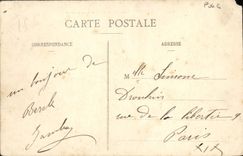 CARTE POSTALE
CORRESPONDANCE
ADRESSE
un bonjour de
Berck
M lle Simone
rue de la liberté 9
Paris